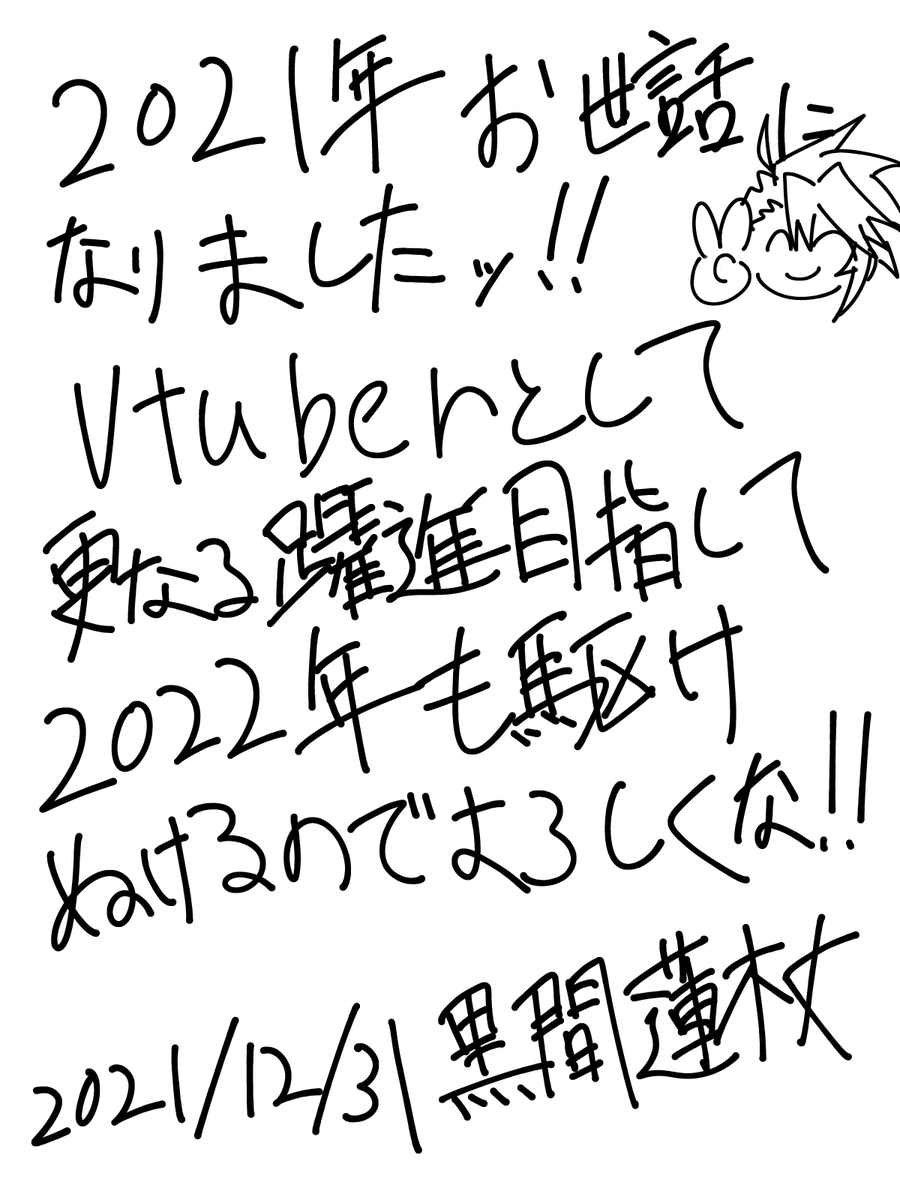 2021年 お世話に
なりましたッ!!
Vtuberとして
更なる躍進目指して
2022年も駆け
ぬけるのでよろしくな!!
2021/12/31 黒間蓮杖